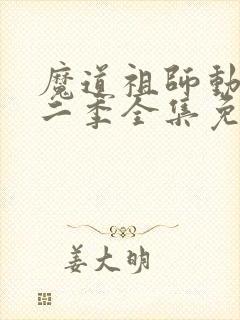 魔道祖師動
二季全集免
姜大明